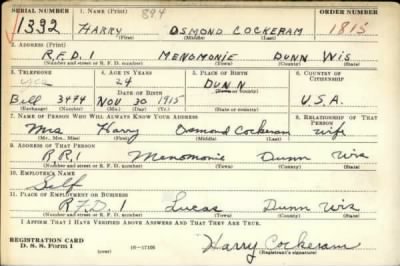 SERIAL NUMBER 1. NAME (Print) 894 ORDER NUMBER
1392 HARRY OSMOND COCKERAM 1815
(First) (Middle) (Last)
2. ADDRESS (Print)
R.F.D. 1 MENOMONIE DUNN WIS
(Number and street or R. F. D. number) (Town) (County) (State)
3. TELEPHONE 4. AGE IN YEARS 5. PLACE OF BIRTH 6. COUNTRY OF CITIZENSHIP
24 DUNN
DATE OF BIRTH (Town or county)
Bell 3474 NOV 30 1915 WIS U.S.A.
(Exchange) (Number) (Mo.) (Day) (Yr.) (State or country)
7. NAME OF PERSON WHO WILL ALWAYS KNOW YOUR ADDRESS 8. RELATIONSHIP OF THAT PERSON
Mrs Harry Osmond Cockeram wife
(Mr., Mrs., Miss) (First) (Middle) (Last)
9. ADDRESS OF THAT PERSON
R.R.1 Menomonie Dunn Wis
(Number and street or R. F. D. number) (Town) (County) (State)
10. EMPLOYER'S NAME
Self
11. PLACE OF EMPLOYMENT OR BUSINESS
R.F.D. 1 Lucas Dunn Wis
(Number and street or R. F. D. number) (Town) (County) (State)
I AFFIRM THAT I HAVE VERIFIED ABOVE ANSWERS AND THAT THEY ARE TRUE.
REGISTRATION CARD
D. S. S. Form 1 (over) 16—17105 Harry Cockeram
(Registrant's signature)